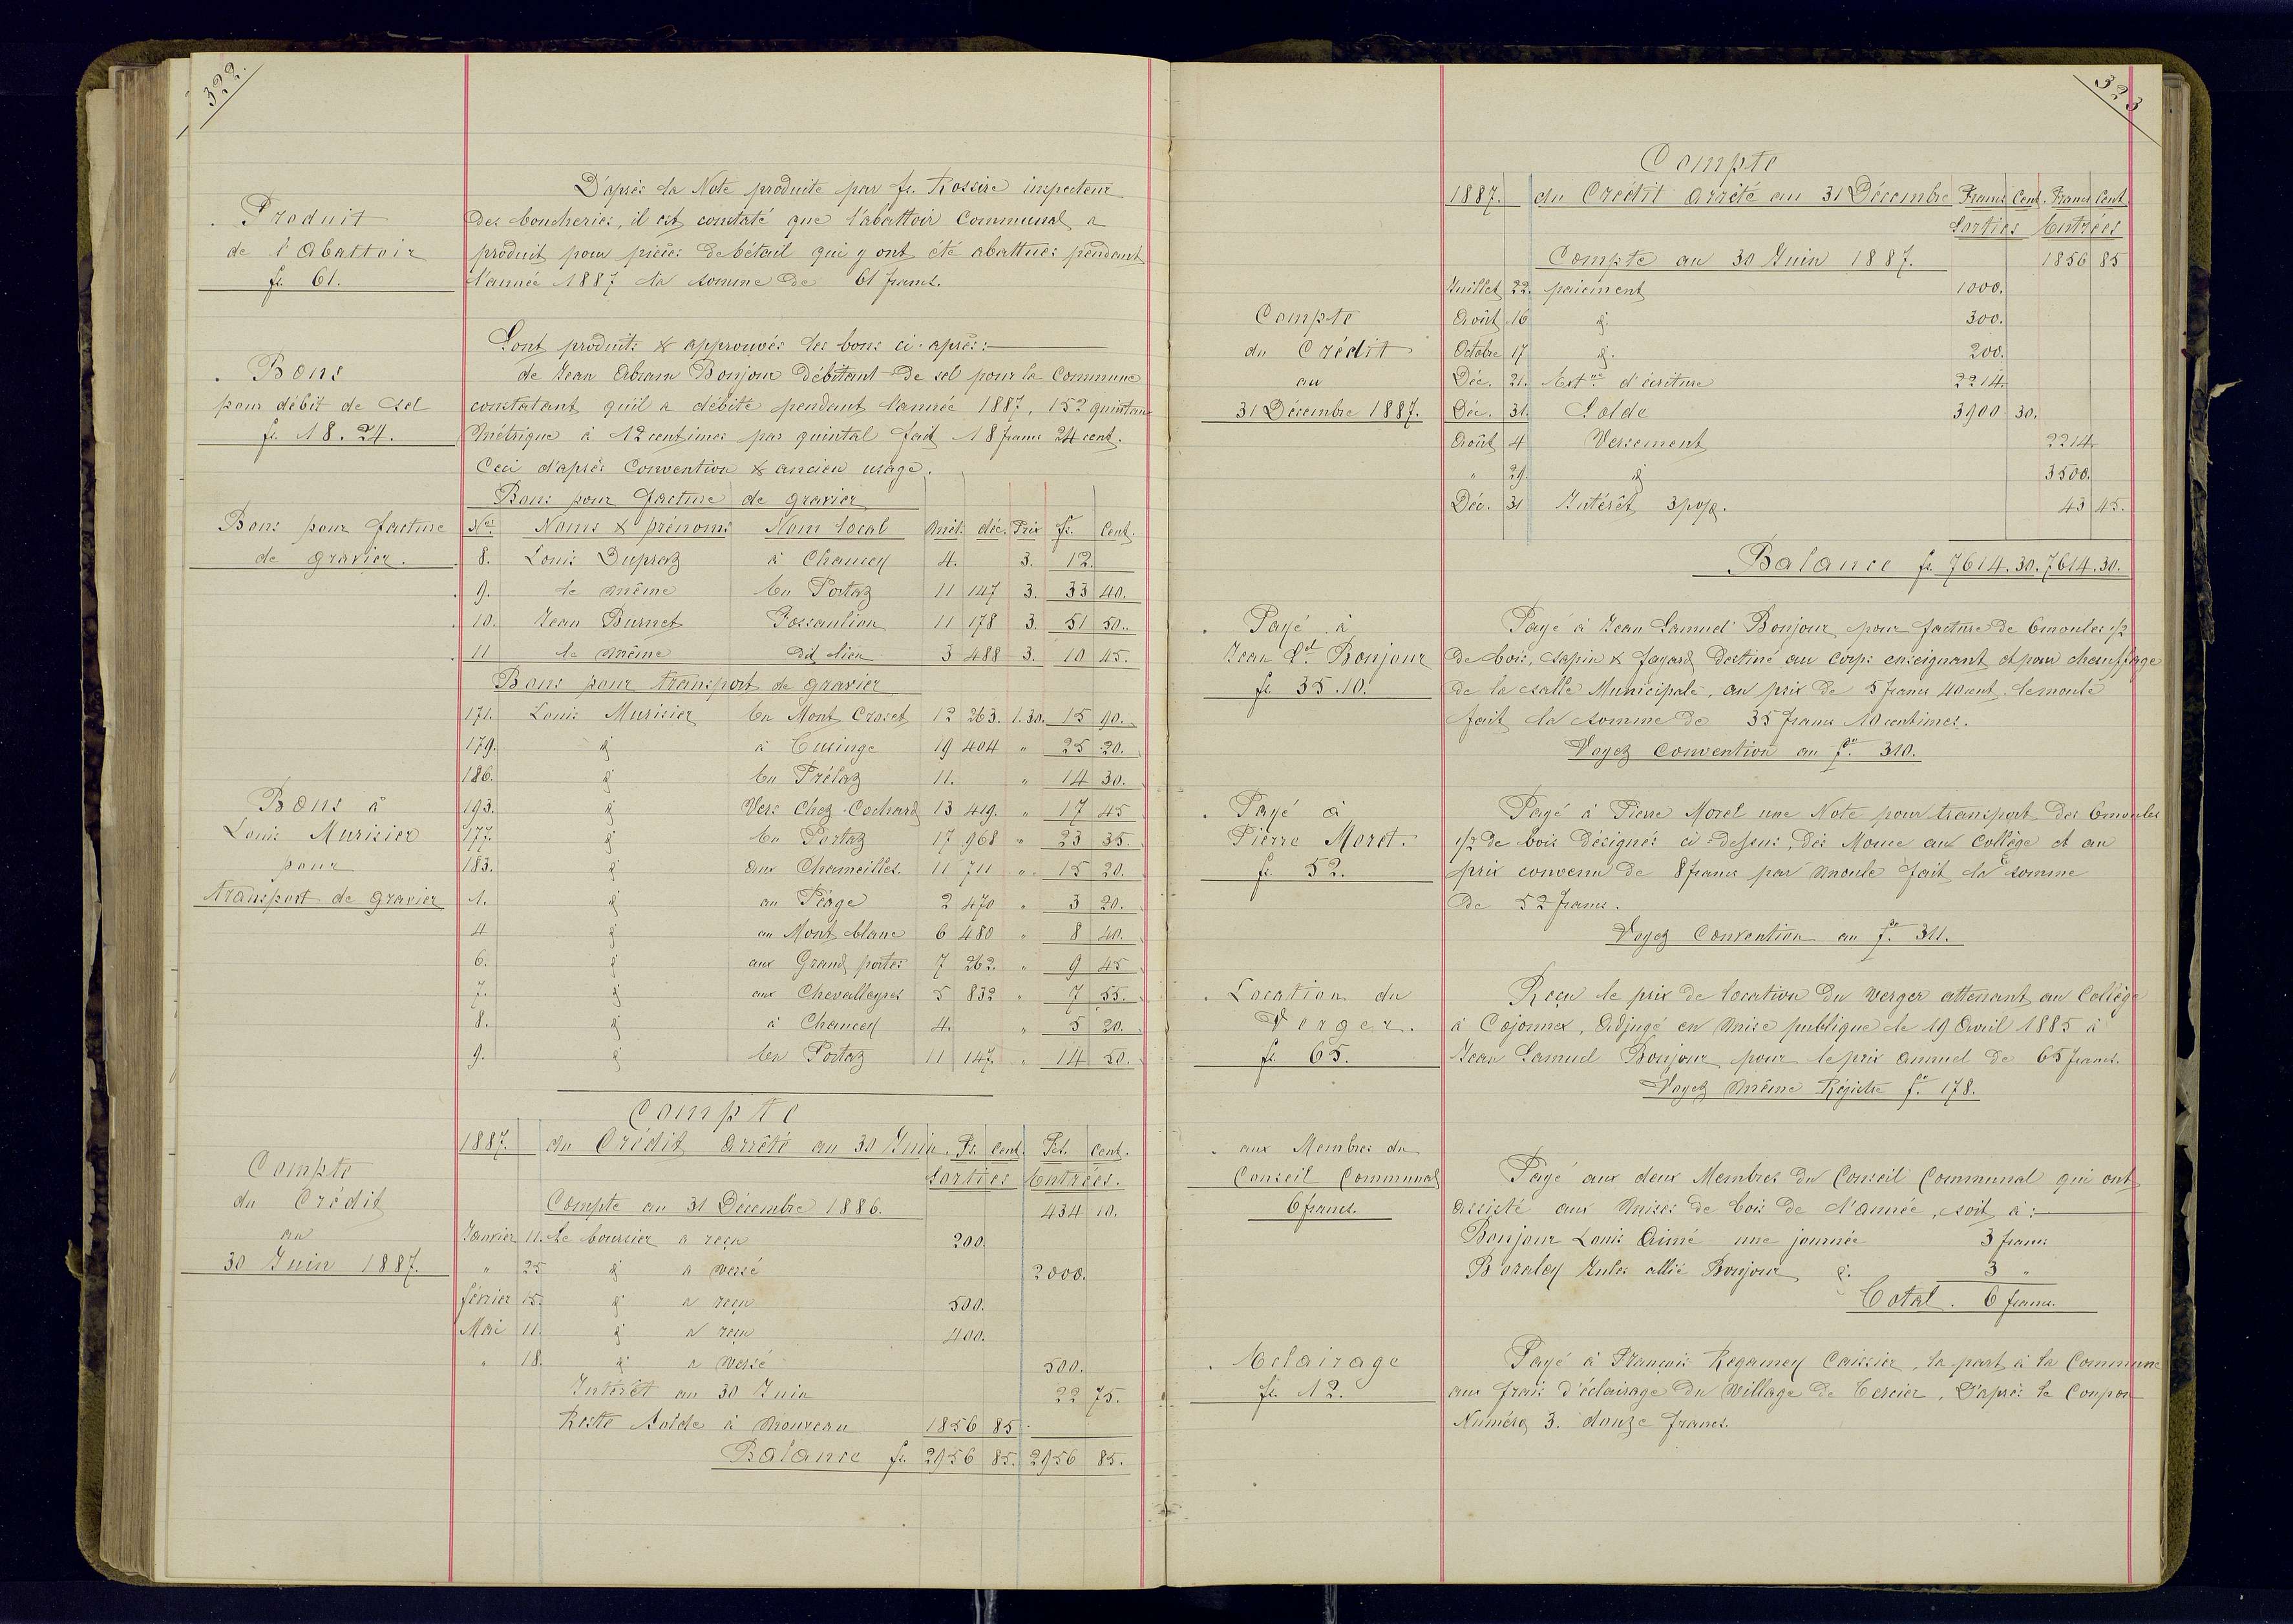 322.
D'après la Note produite par fs. Rossire inspecteur
. Produit
des boucheries, il est constaté que l'abattoir Communal a
de l'Abattoir
produit pour pièces de bétail qui y ont été abattues pendant
fs. 61.
l'année 1887 la somme de 61 francs.
Sont produits & approuvés les bons ci-après:
. Bons
de Jean Abram Bonjour Débitant de sel pour la Commune
pour débit de sel
constatant qu'il a débité pendant l'année 1887, 152 quintaux
fr. 18.24.
métrique à 12 centimes par quintal fait 18 francs 24 cent.
Ceci d'après Convention & ancien usage.
Bons pour facture de gravier
Bons pour facture
de gravier.
Nos Noms & prénoms Nom local Mèt. déc. Prix fr. Cent.
8. Louis Dupraz à Chaucey 4. 3. 12.
9. le même En Portaz 11 147 3. 33 40.
10. Jean Burnet Fossaulion 11 178 3. 51 50.
11 le même dit lieu 3 488 3. 10 45.
Bons pour transport de gravier
171. Louis Murisier En Mont Croset 12 263. 1.30. 15 90.
179. d° à Cusinge 19 404 " 25 20.
186. d° En Prélaz 11. " 14 30.
Bons à
Louis Murisier
pour
transport de gravier
193. d° Vers Chez Cochard 13 419. " 17 45
177. d° En Portaz 17 968 " 23 35.
183. d° aux Chameilles. 11 711 " 15 20.
1. d° au Péage 2 470 " 3 20.
4 d° au Mont blanc 6 480 " 8 40.
6. d° aux Grand portes 7 262. " 9 45
7. d° aux Chevalleyres 5 832 " 7 55.
8. d° à Chaucey 4. " 5 20.
9. d° En Portaz 11 147. " 14 50.
Compte
1887. du Crédit arrêté au 30 Juin. Fr. Cent. Fcs. Cent.
Sorties Entrées.
Compte
du Crédit
au
30 Juin 1887.
Compte au 31 Décembre 1886. 434 10.
Janvier 11. Le boursier a reçu 200.
" 25 d° a versé 2000.
février 15. d° a reçu 500.
Mai 11. d° a reçu 400.
" 18. d° a versé 500.
Intérêt au 30 Juin 22 75.
Reste Solde à nouveau 1856 85
Balance fr. 2956 85. 2956 85.
323
Compte
1887. du Crédit arrêté au 31 Décembre Francs Cent. Francs Cent.
Sorties Entrées
Compte au 30 Juin 1887. 1856 85
Compte
du Crédit
au
31 Décembre 1887.
Juillet 22. paiement 1000.
Août 16 d°. 300.
Octobre 17 d°. 200.
Déc. 21. Ext.ne d'écriture 2214.
Déc. 31. Solde 3900 30.
Août 4 Versement 2214
" 29. d° 3500.
Déc. 31 Intérêt 3 po/o. 43 45.
Balance fr. 7614.30. 7614.30.
. Payé à
Jean Sel. Bonjour
fr. 35.10.
Payé à Jean Samuel Bonjour pour facture de 6 moules 1/2
de bois, sapin & fayard destiné au corps enseignant et pour chauffage
de la salle Municipale, au prix de 5 francs 40 cent. le moule
fait la somme de 35 francs 10 centimes.
Voyez Convention au f°. 310.
. Payé à
Pierre Morel.
fr. 52.
Payé à Pierre Morel une Note pour transport des 6 moules
1/2 de bois désignés ci-dessus, dès Mouce au Collège et au
prix convenu de 8 francs par moule fait la somme
de 52 francs.
Voyez Convention au f°. 311.
. Location du
Verger.
fr. 65.
Reçu le prix de location du verger attenant au Collège
à Cojonnex, Adjugé en mise publique le 19 Avril 1885 à
Jean Samuel Bonjour pour le prix annuel de 65 francs.
Voyez même Régistre f°. 178.
. aux Membres du
Conseil Communal
6 francs.
Payé aux deux Membres du Conseil Communal qui ont
assisté aux mises de bois de l'année, soit à:
Bonjour Louis Aimé une journée 3 francs
Boraley Jules allié Bonjour d°. 3 "
Total. 6 francs.
. Eclairage
fr. 12.
Payé à François Regamey Caissier, la part à la Commune
aux frais d'éclairage du village de Tercier, D'après le Coupon
Numéro 3. douze francs.